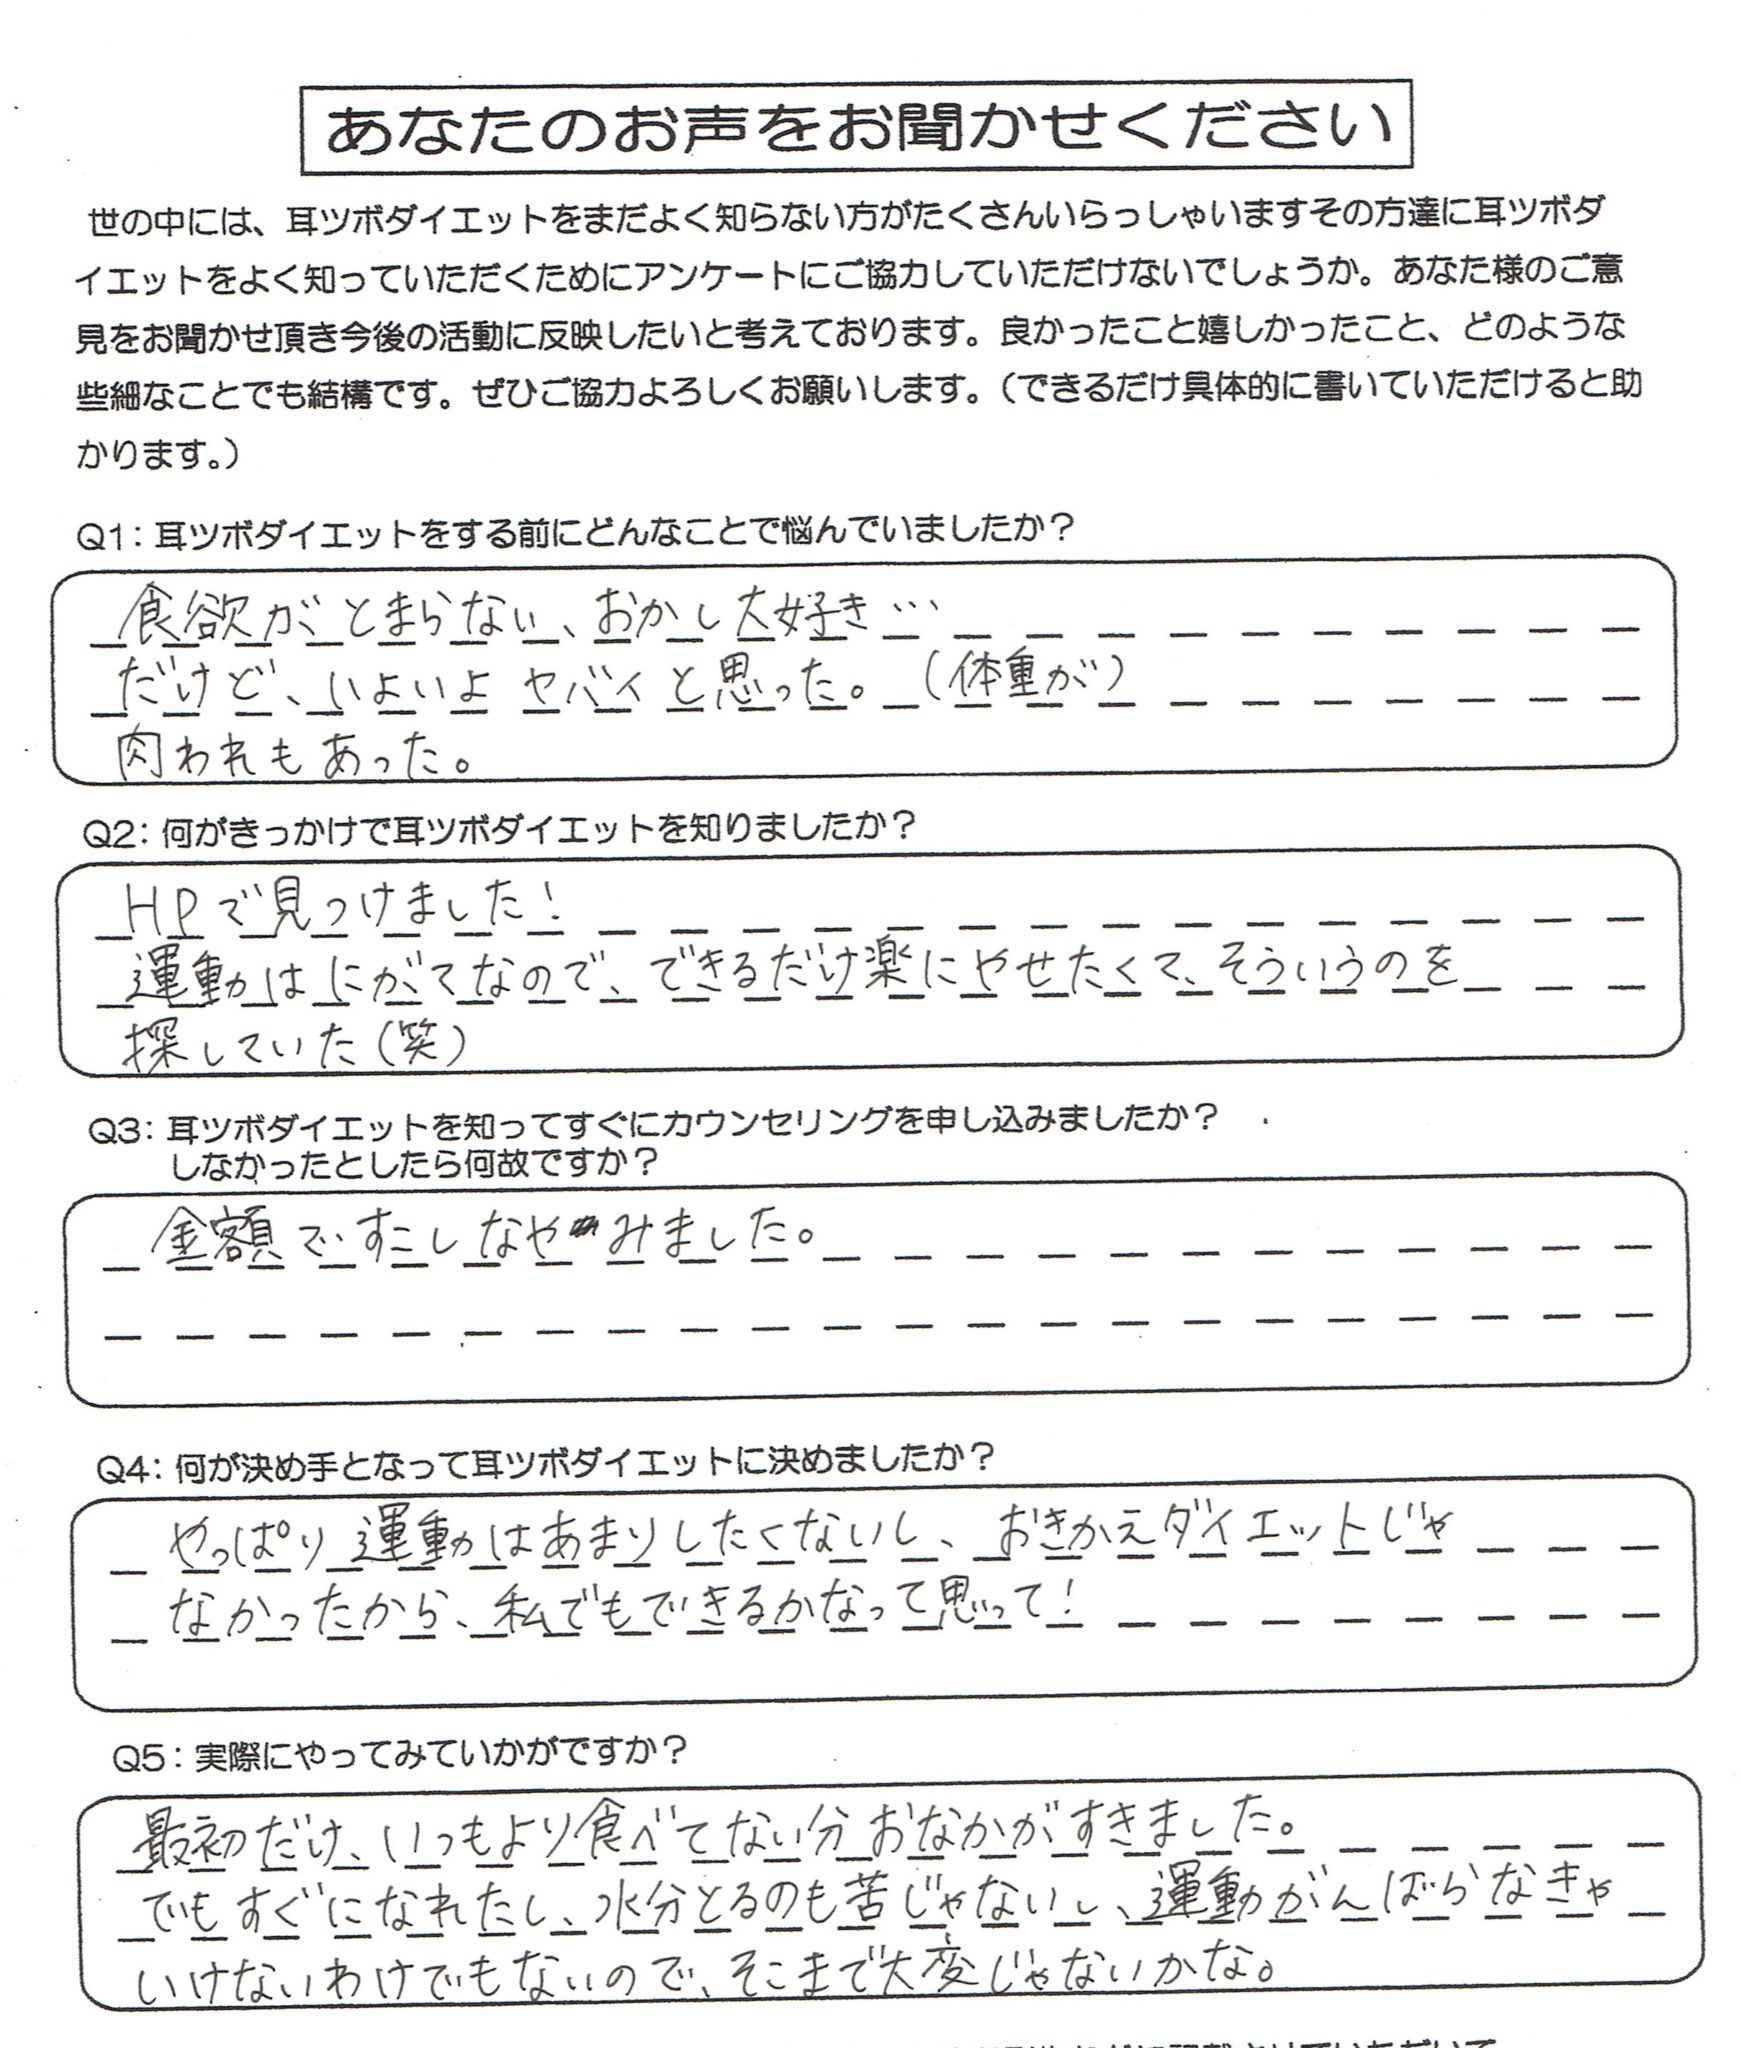 あなたのお声をお聞かせください
世の中には、耳ツボダイエットをまだよく知らない方がたくさんいらっしゃいますその方達に耳ツボダ
イエットをよく知っていただくためにアンケートにご協力していただけないでしょうか。あなた様のご意
見をお聞かせ頂き今後の活動に反映したいと考えております。良かったこと嬉しかったこと、どのような
些細なことでも結構です。ぜひご協力よろしくお願いします。（できるだけ具体的に書いていただけると助
かります。）
Q1：耳ツボダイエットをする前にどんなことで悩んでいましたか？
食欲がとまらない、おかし大好き…
だけど、いよいよヤバイと思った。（体重が）
肉われもあった。
Q2：何がきっかけで耳ツボダイエットを知りましたか？
HPで見つけました！
運動はにがてなので、できるだけ楽にやせたくて、そういうのを
探していた（笑）
Q3：耳ツボダイエットを知ってすぐにカウンセリングを申し込みましたか？
しなかったとしたら何故ですか？
金額で、すこしなやみました。
Q4：何が決め手となって耳ツボダイエットに決めましたか？
やっぱり運動はあまりしたくないし、おきかえダイエットじゃ
なかったから、私でもできるかなって思って！
Q5：実際にやってみていかがですか？
最初だけ、いつもより食べてない分おなかがすきました。
でもすぐになれたし、水分とるのも苦じゃないし、運動がんばらなきゃ
いけないわけでもないので、そこまで大変じゃないかな。